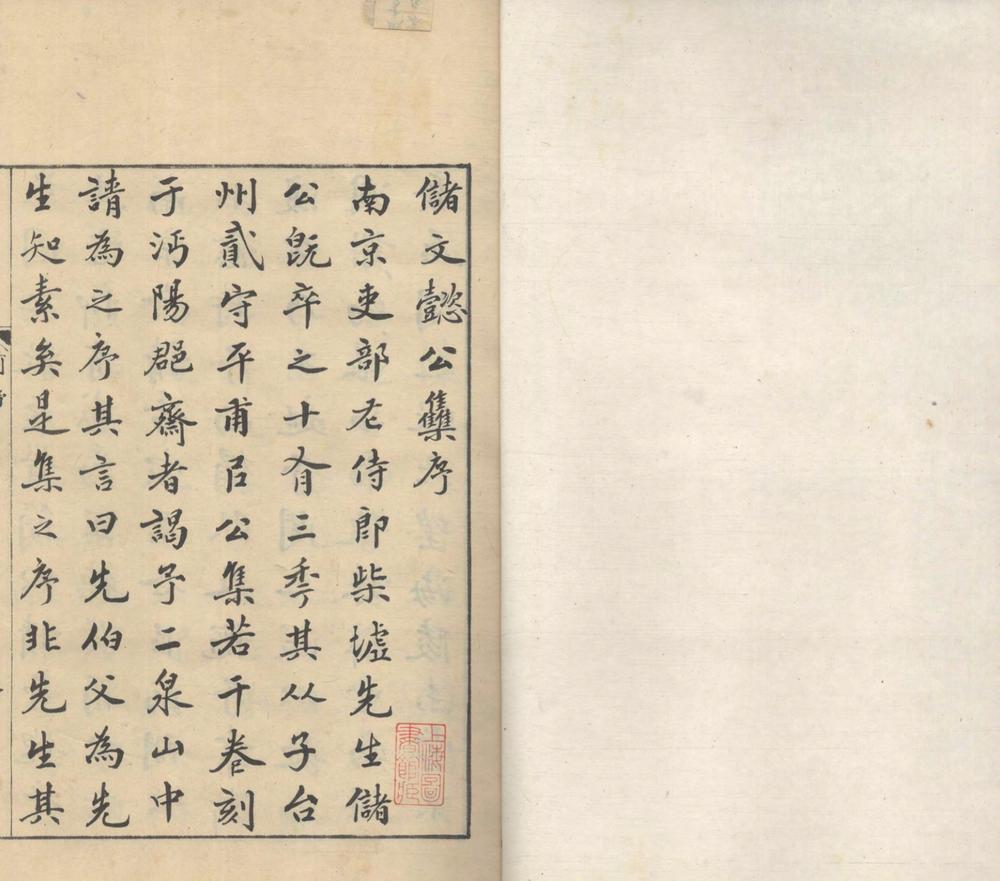 儲文懿公雧序
南京吏部左侍郎柴墟先生儲
公旣卒之十有三秊其从子台
州貳守平甫㠯公集若干卷刻
于沔陽郡齋者謁予二泉山中
請為之序其言曰先伯父為先
生知素矣是集之序非先生其
上海圖書館藏